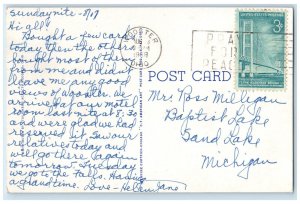 Sunday nite - 8/17
Hi all!
Bought a few cards
today then the others
bought most of them
from me and didn't
leave me any good
views of Wooster. We
arrived at our motel
room last nite at 8:30
and were glad we had
reserved it. Saw our
relatives today and
will go there again
tomorrow. Tuesday
we go to the Falls. Having
a grand time. Love - Helen Jane
WOOSTER
AUG
18
OHIO
PRAY
FOR
PEACE
UNITED STATES POSTAGE
3¢
POST CARD
Mrs Ross Milligan
Baptist Lake
Sand Lake
Michigan